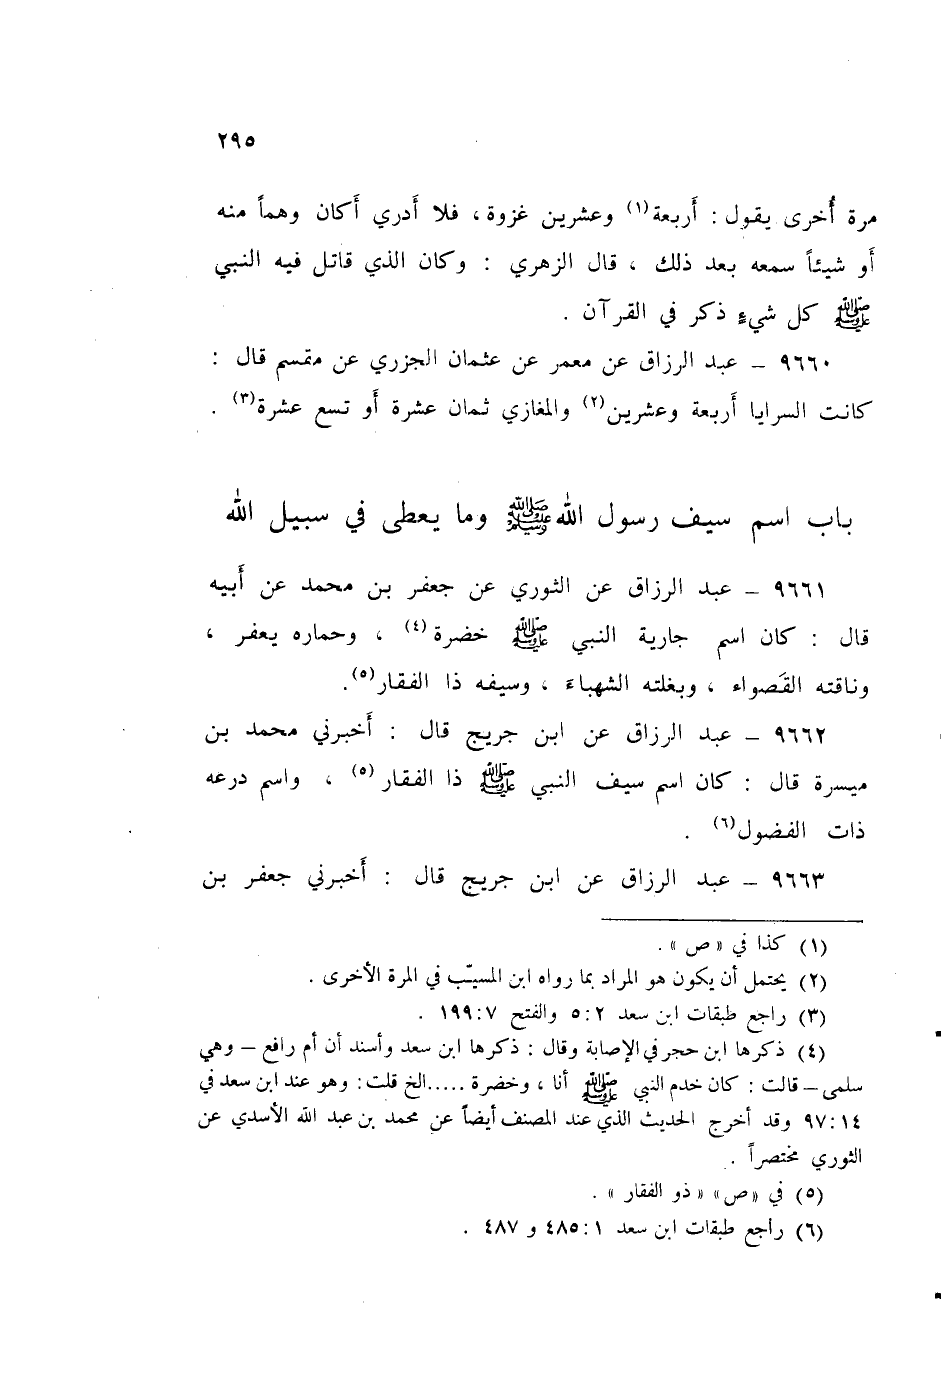 ٢٩٥
مرة أُخرى يقول : أَربعة(١) وعشرين غزوة ، فلا أَدري أَكان وهماً منه
أَو شيئاً سمعه بعد ذلك ، قال الزهري : وكان الذي قاتل فيه النبي
ﷺ كل شيءٍ ذكر في القرآن .
٩٦٦٠ – عبد الرزاق عن معمر عن عثمان الجزري عن مقسم قال :
كانت السرايا أَربعة وعشرين(٢) والمغازي ثمان عشرة أَو تسع عشرة(٣) .
باب اسم سيف رسول الله ﷺ وما يعطى في سبيل الله
٩٦٦١ – عبد الرزاق عن الثوري عن جعفر بن محمد عن أَبيه
قال : كان اسم جارية النبي ﷺ خضرة(٤) ، وحماره يعفر ،
وناقته القَصواء ، وبغلته الشهباءَ ، وسيفه ذا الفقار(٥).
٩٦٦٢ – عبد الرزاق عن ابن جريج قال : أَخبرني محمد بن
ميسرة قال : كان اسم سيف النبي ﷺ ذا الفقار(٥) ، واسم درعه
ذات الفضول(٦) .
٩٦٦٣ – عبد الرزاق عن ابن جريج قال : أَخبرني جعفر بن
(١) كذا في « ص » .
(٢) يحتمل أن يكون هو المراد بما رواه ابن المسيّب في المرة الأخرى .
(٣) راجع طبقات ابن سعد ٢:٥ والفتح ٧:١٩٩ .
(٤) ذكرها ابن حجر في الإصابة وقال : ذكرها ابن سعد وأسند أن أم رافع – وهي
سلمى – قالت : كان خدم النبي ﷺ أنا ، وخضرة .....الخ قلت : وهو عند ابن سعد في
١٤:٩٧ وقد أخرج الحديث الذي عند المصنف أيضاً عن محمد بن عبد الله الأسدي عن
الثوري مختصراً .
(٥) في « ص » « ذو الفقار » .
(٦) راجع طبقات ابن سعد ١:٤٨٥ و ٤٨٧ .